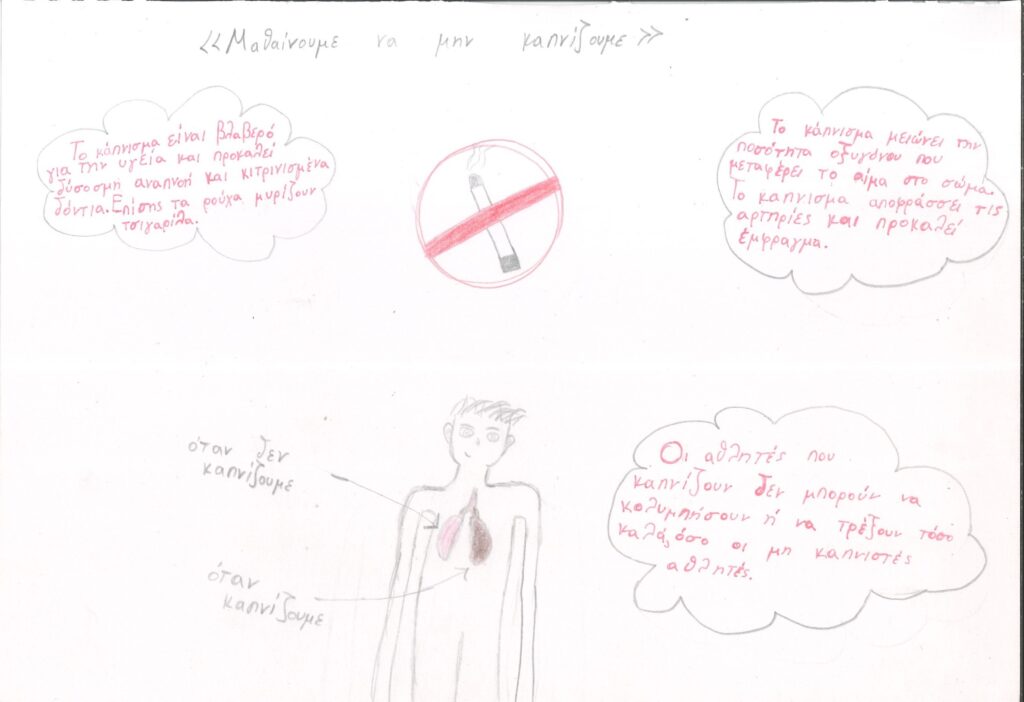 <<Μαθαίνουμε να μην καπνίζουμε>>
Το κάπνισμα είναι βλαβερό
για την υγεία και προκαλεί
δύσοσμη αναπνοή και κιτρινισμένα
δόντια. Επίσης τα ρούχα μυρίζουν
τσιγαρίλα.
Το κάπνισμα μειώνει την
ποσότητα οξυγόνου που
μεταφέρει το αίμα στο σώμα.
Το κάπνισμα αποφράσσει τις
αρτηρίες και προκαλεί
έμφραγμα.
όταν δεν
καπνίζουμε
όταν
καπνίζουμε
Οι αθλητές που
καπνίζουν δεν μπορούν να
κολυμπήσουν ή να τρέξουν τόσο
καλά, όσο οι μη καπνιστές
αθλητές.